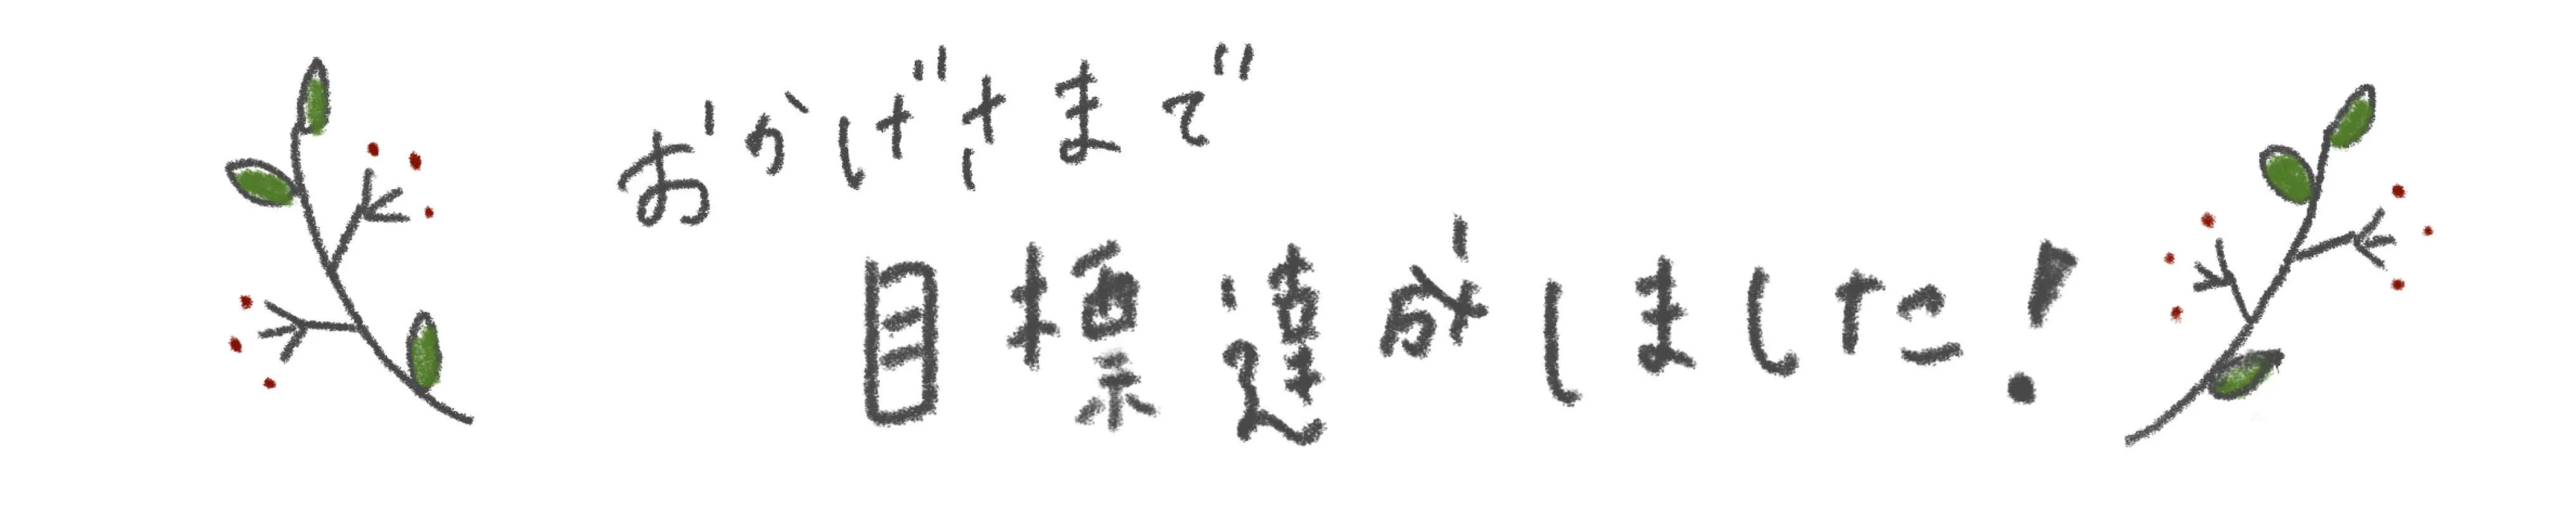 おかげさまで
目標達成しました!